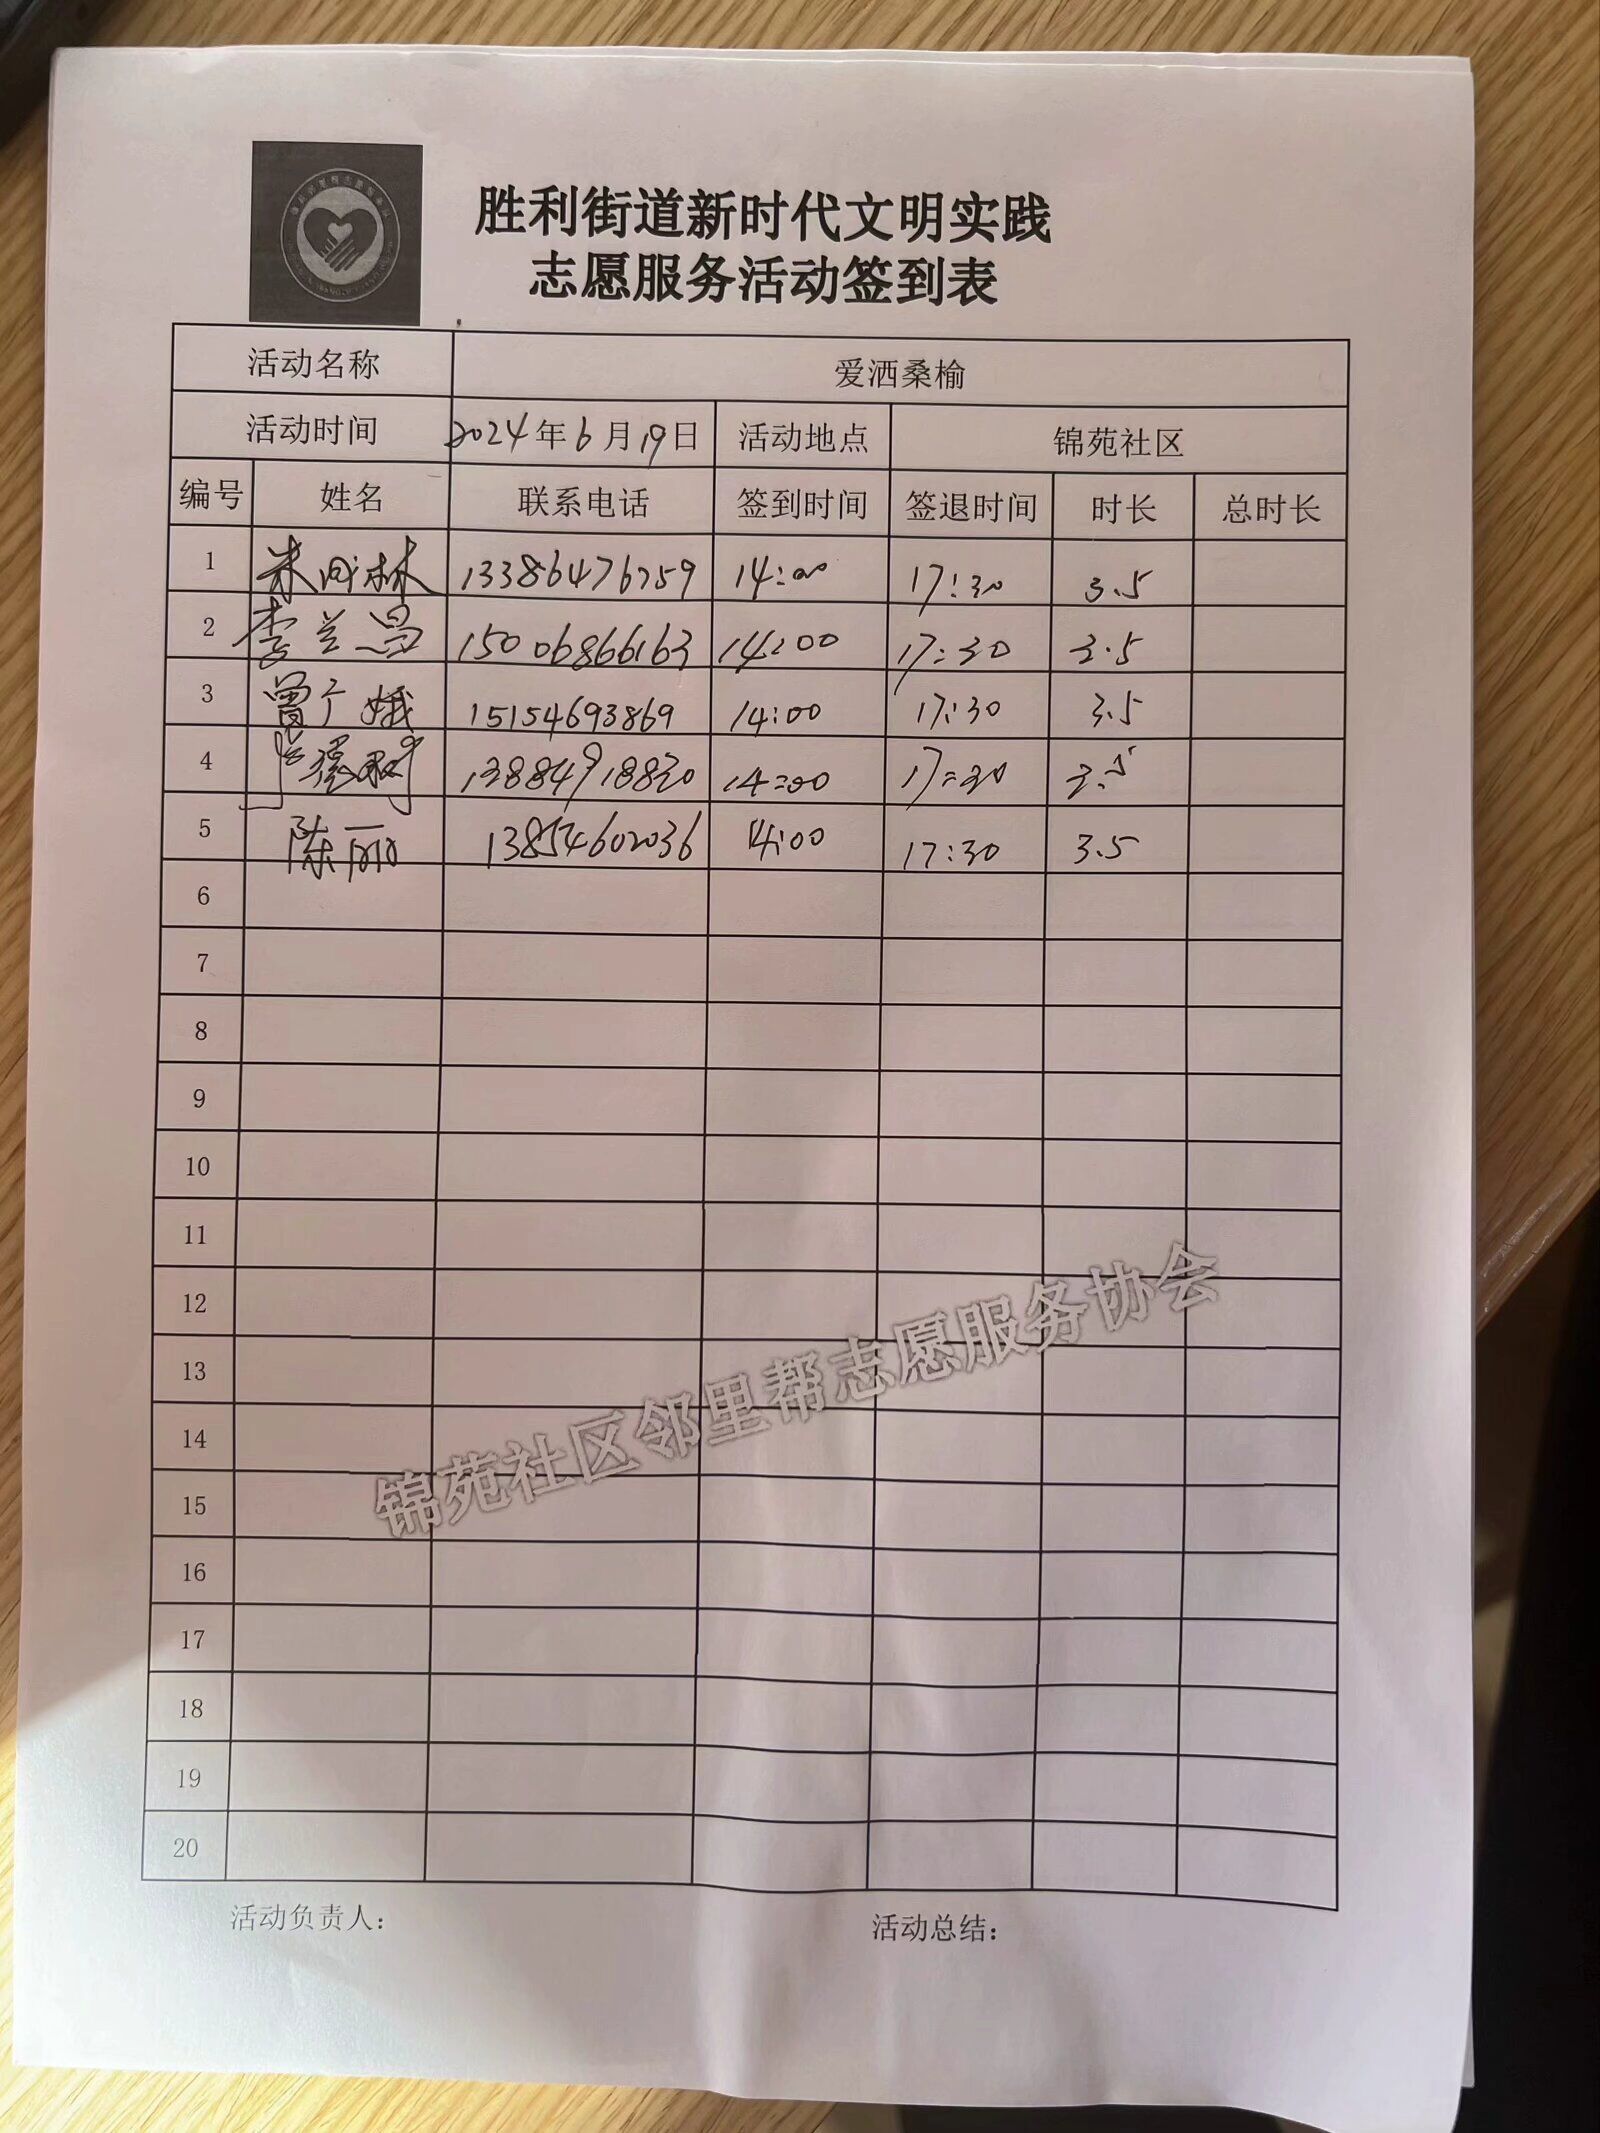 胜利街道新时代文明实践
志愿服务活动签到表
活动名称 爱洒桑榆
活动时间 2024年6月19日 活动地点 锦苑社区
编号 姓名 联系电话 签到时间 签退时间 时长 总时长
1 米成林 13386476759 14:00 17:30 3.5
2 李兰昌 15006866163 14:00 17:30 3.5
3 曾广娥 15154693869 14:00 17:30 3.5
4 13884918820 14:00 17:30 3.5
5 陈丽 13854602036 14:00 17:30 3.5
6
7
8
9
10
11
12
13
14
15
16
17
18
19
20
锦苑社区邻里帮志愿服务协会
活动负责人： 活动总结：